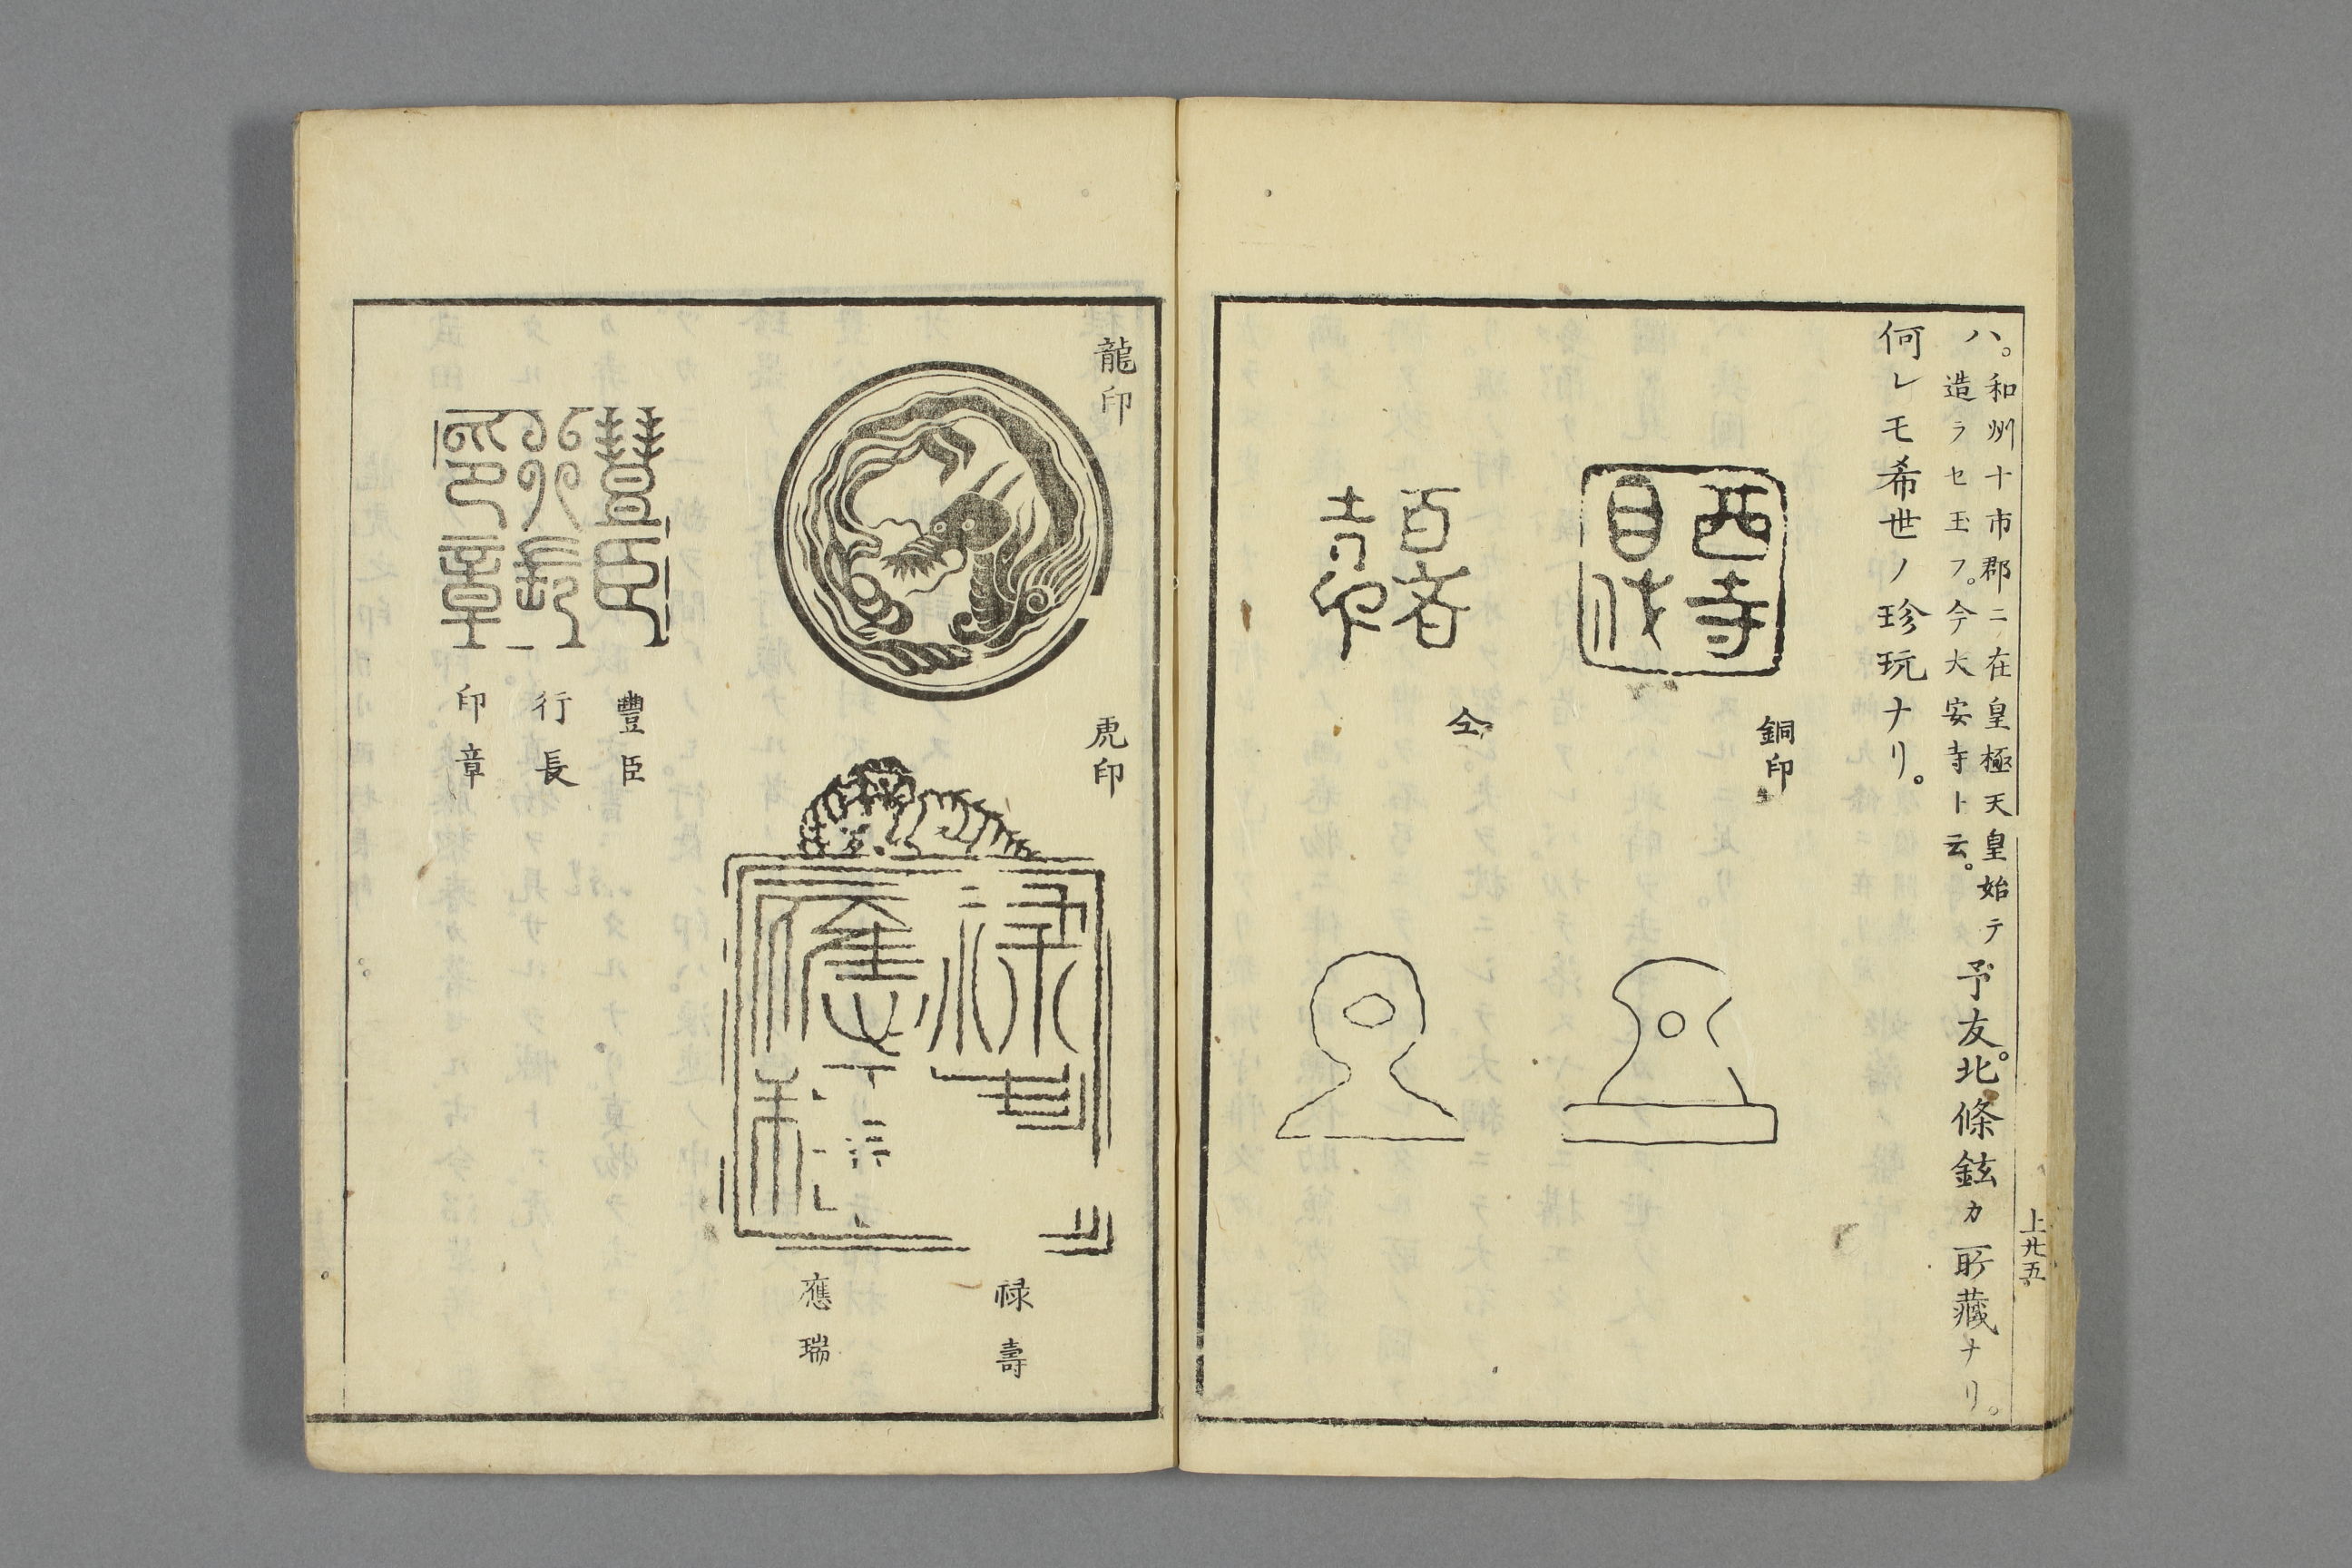 ハ。和州十市郡ニ在皇極天皇始テ
造ラセ玉フ。今大安寺ト云。
予友。北條鉉カ所藏ナリ。
何レモ希世ノ珍玩ナリ。
西寺
銅印
仝
上廿五
龍印
虎印
禄壽
應瑞
豐臣
行長
印章
豐臣
行長
印章